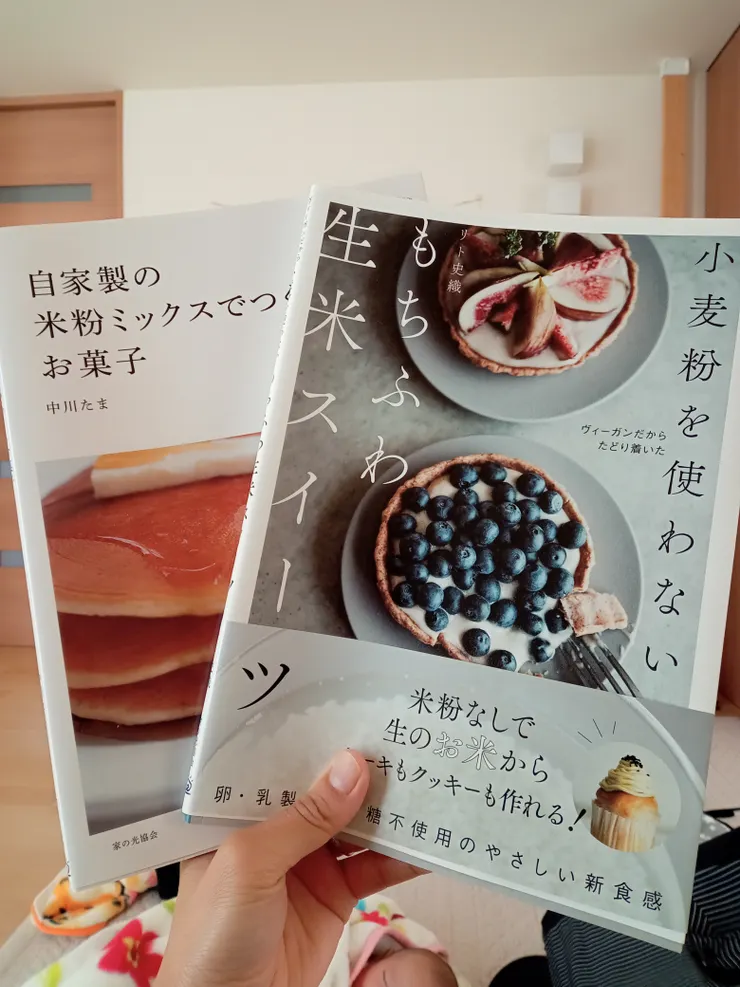 自家製の
米粉ミックスでつ
お菓子
中川たま
家の光協会
小麦粉を使わない
もちふわ
生米スイーツ
リト史織
ヴィーガンだから
たどり着いた
米粉なしで
生のお米から
ーキもクッキーも作れる!
卵・乳製
糖不使用のやさしい新食感